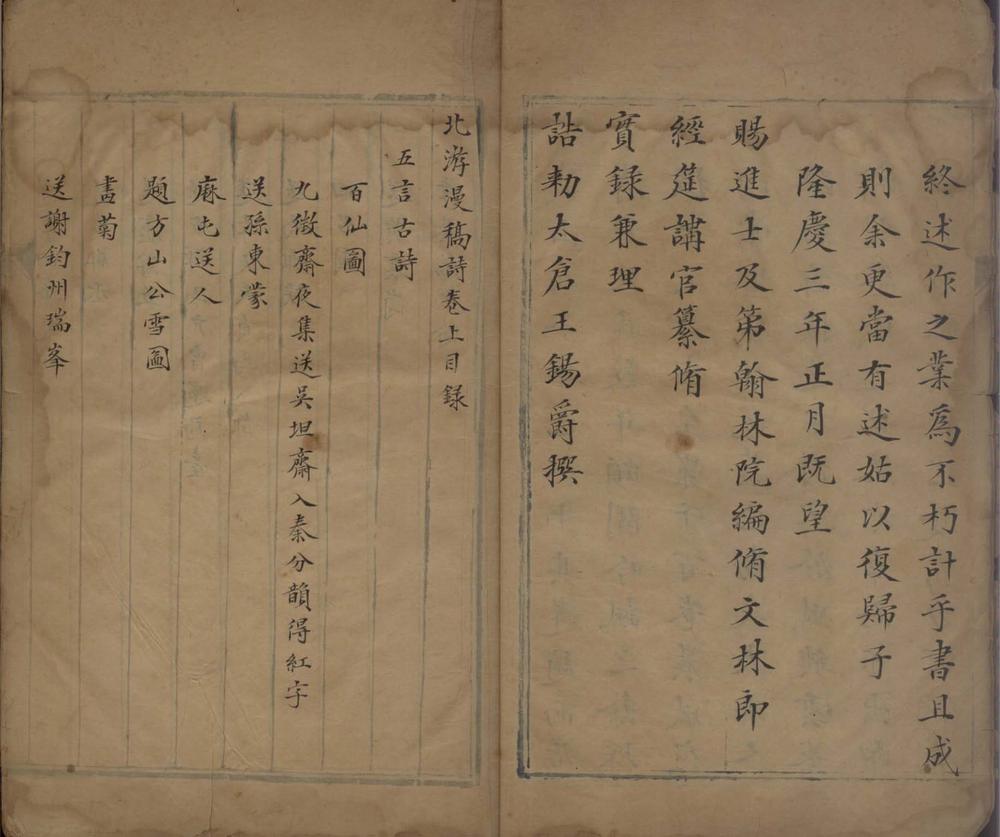 終述作之業為不朽計乎書且成
則余更當有述姑以復歸子
隆慶三年正月既望
賜進士及第翰林院編脩文林郎
經筵講官纂脩
實録兼理
誥勑太倉王錫爵撰
北游漫稿詩卷上目録
五言古詩
百仙圖
九徵齋夜集送吳坦齋入秦分韻得紅字
送孫東蒙
麻屯送人
題方山公雪圖
畫菊
送謝鈞州瑞峯